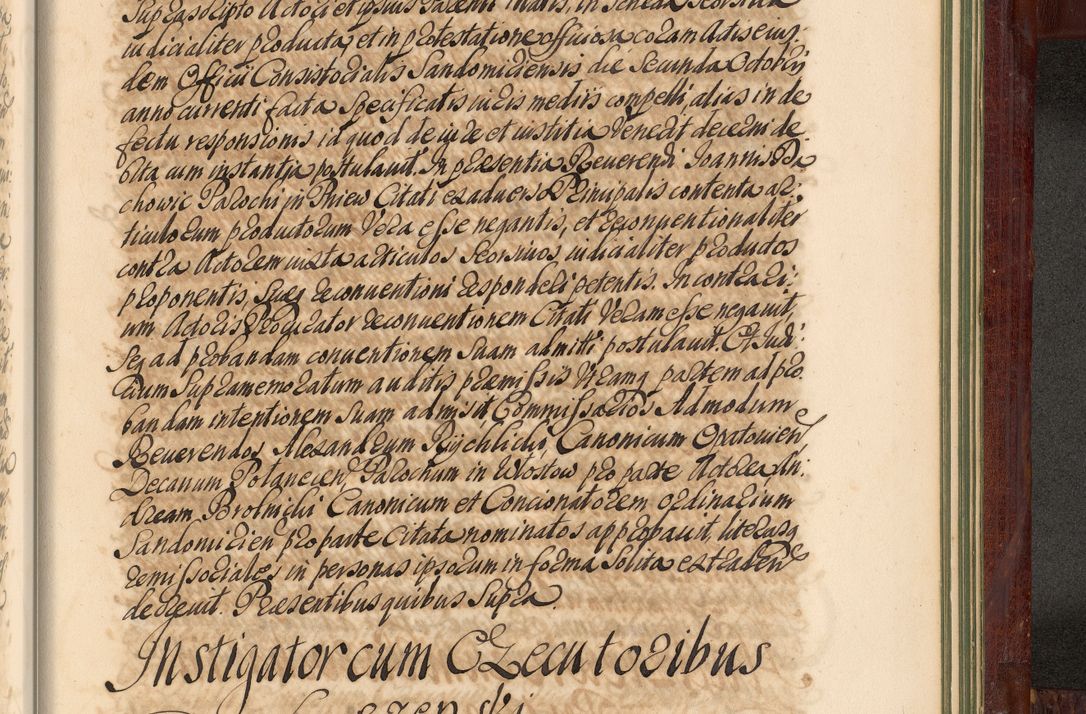 suprascripto Actori et ipsius Parenti Matri, in scheda seorsiva
iudicialiter producta, et in protestatione officiosa coram Actis eius-
dem Officii Consistorialis Sandomiriensis die Secunda Octobris
anno currenti facta specificatis iuris mediis compelli alias in de
fectu responsionis id quod de iure et iustitia venerit decerni de
bita cum instantia postulavit. In praesentia Reverendi Joannis Ra
chowic Parochi in Pniew Citati ex adverso Principalis contenta ar-
ticulorum productorum vera esse negantis, et reconventionaliter
contra Actorem iuxta articulos seorsivos iudicialiter productos
proponentis, suaeq reconventioni responderi petentis. In contrari-
um Actoris Procurator reconventionem Citati veram esse negavit,
seq ad probandam conventionem suam admitti postulavit. Et Judi-
cium supramemoratum auditis praemissis utramq partem ad pro-
bandam intentionem suam admisit Commissarios Admodum
Reverendos Alexandrum Rychlicki Canonicum Opatovien
Decanum Polanecen, Parochum in Wostow pro parte Actorea An-
dream Brolnicki Canonicum et Concionatorem ordinarium
Sandomirien pro parte Citata nominatos approbavit, literasq
remissoriales in personas ipsorum in forma solita extraden
decrevit. Praesentibus quibus supra.
Instigator cum Executoribus